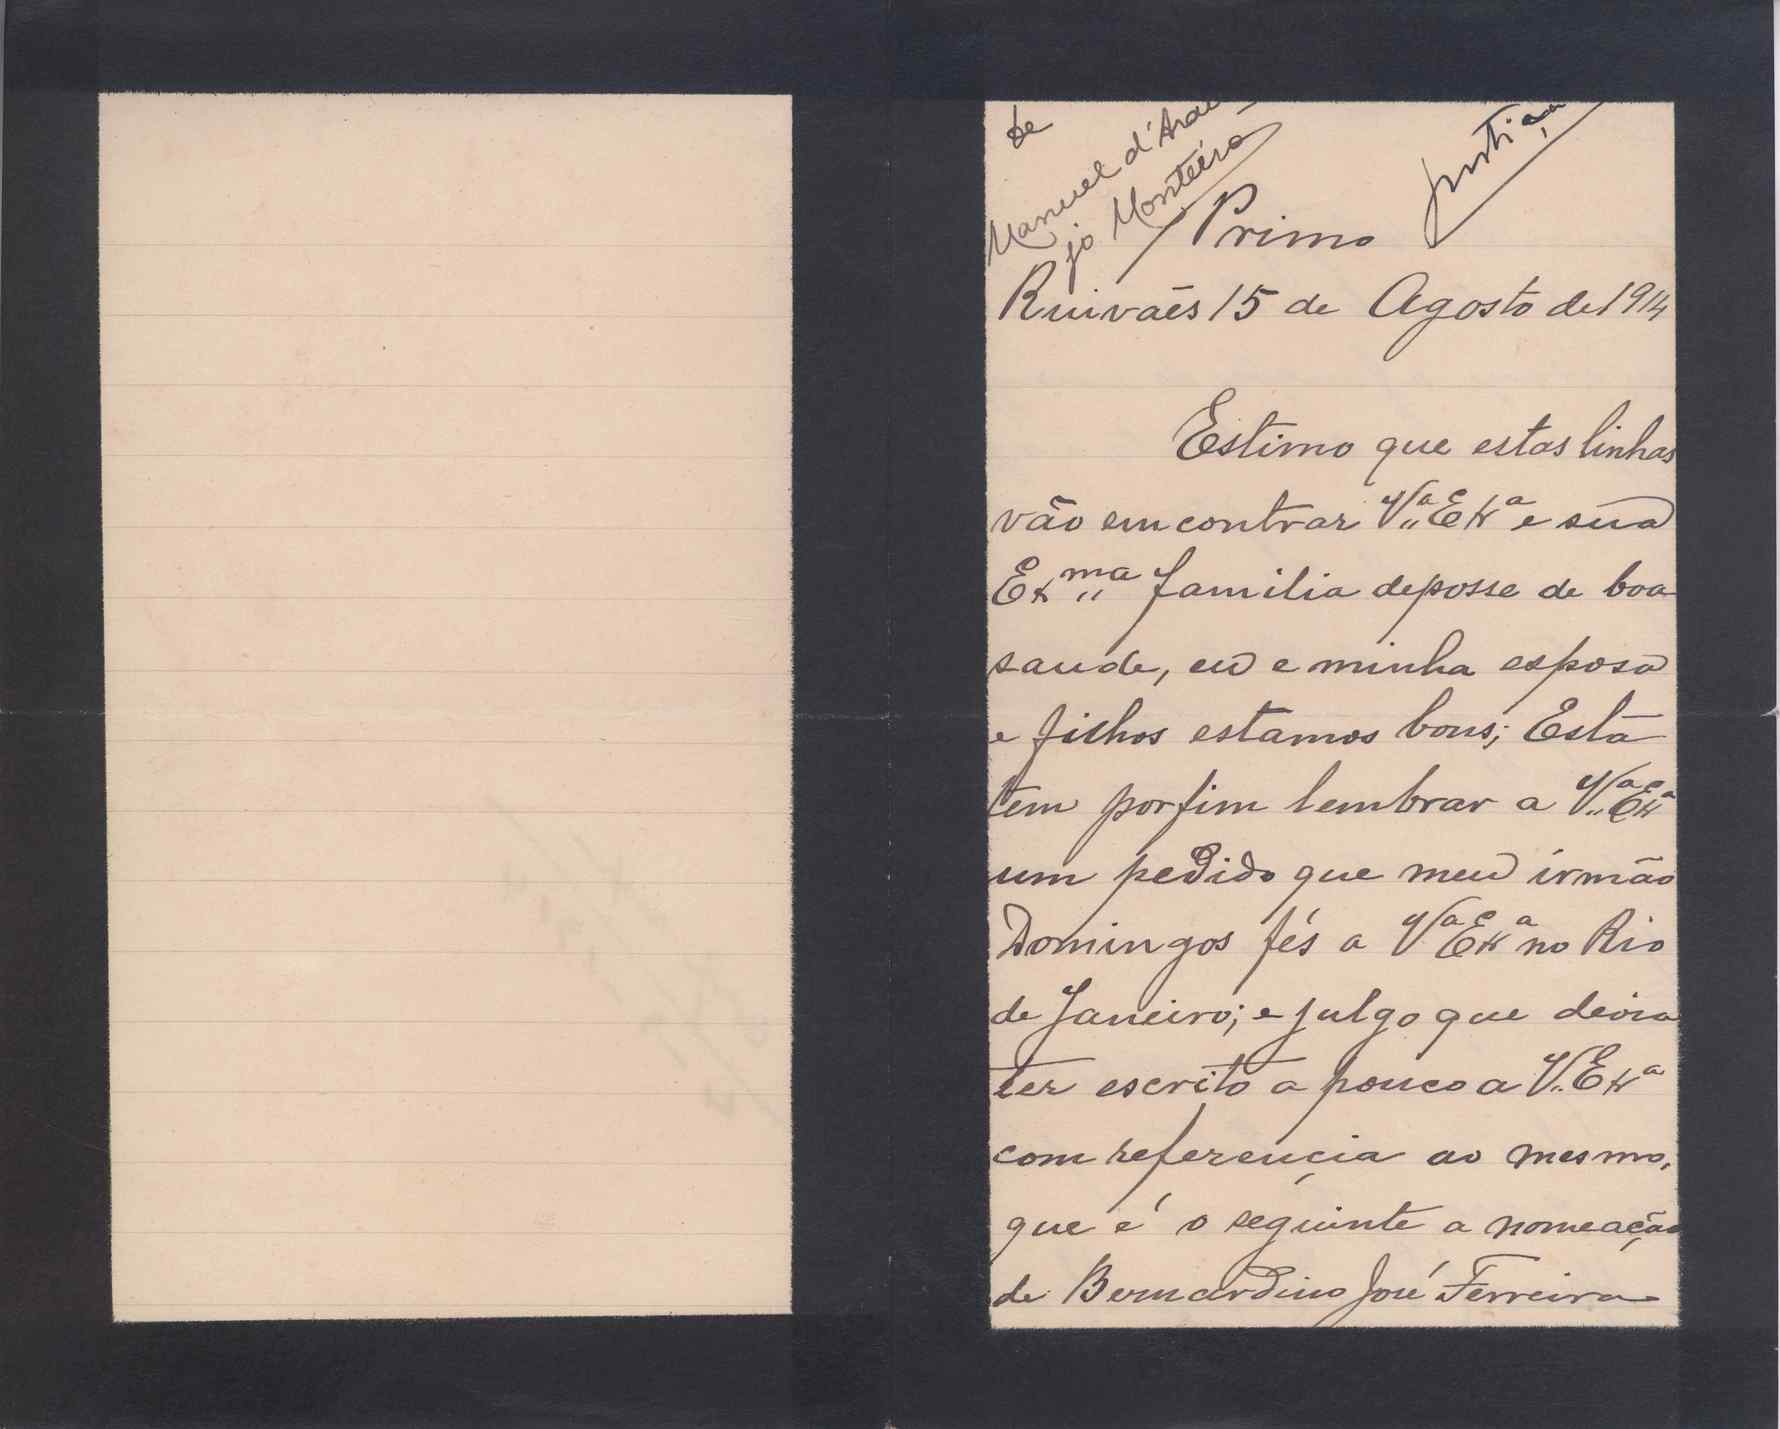 de
Manuel d'Arau
jo Monteiro
Justiça
Primo
Ruivães 15 de Agosto de 1914
Estimo que estas linhas
vão emcontrar V.ª Exª e sua
Exma familia deposse de boa
saude, eu e minha esposa
e filhos estamos bons; Esta
tem porfim lembrar a V.ª Exª
um pedido que meu irmão
Domingos fés a Vª Exª no Rio
de Janeiro; e julgo que devia
ter escrito a pouco a V. Exª
com referençia ao mesmo,
que é o seguinte a nomeação
de Bernardino José Ferreira